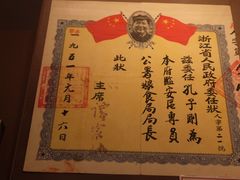 浙江省人民政府委任狀
人字第二一號
茲委任孔子剛為
本府臨安區專員
公署糧食局局長
此狀
主席
一九五一年元月十六日